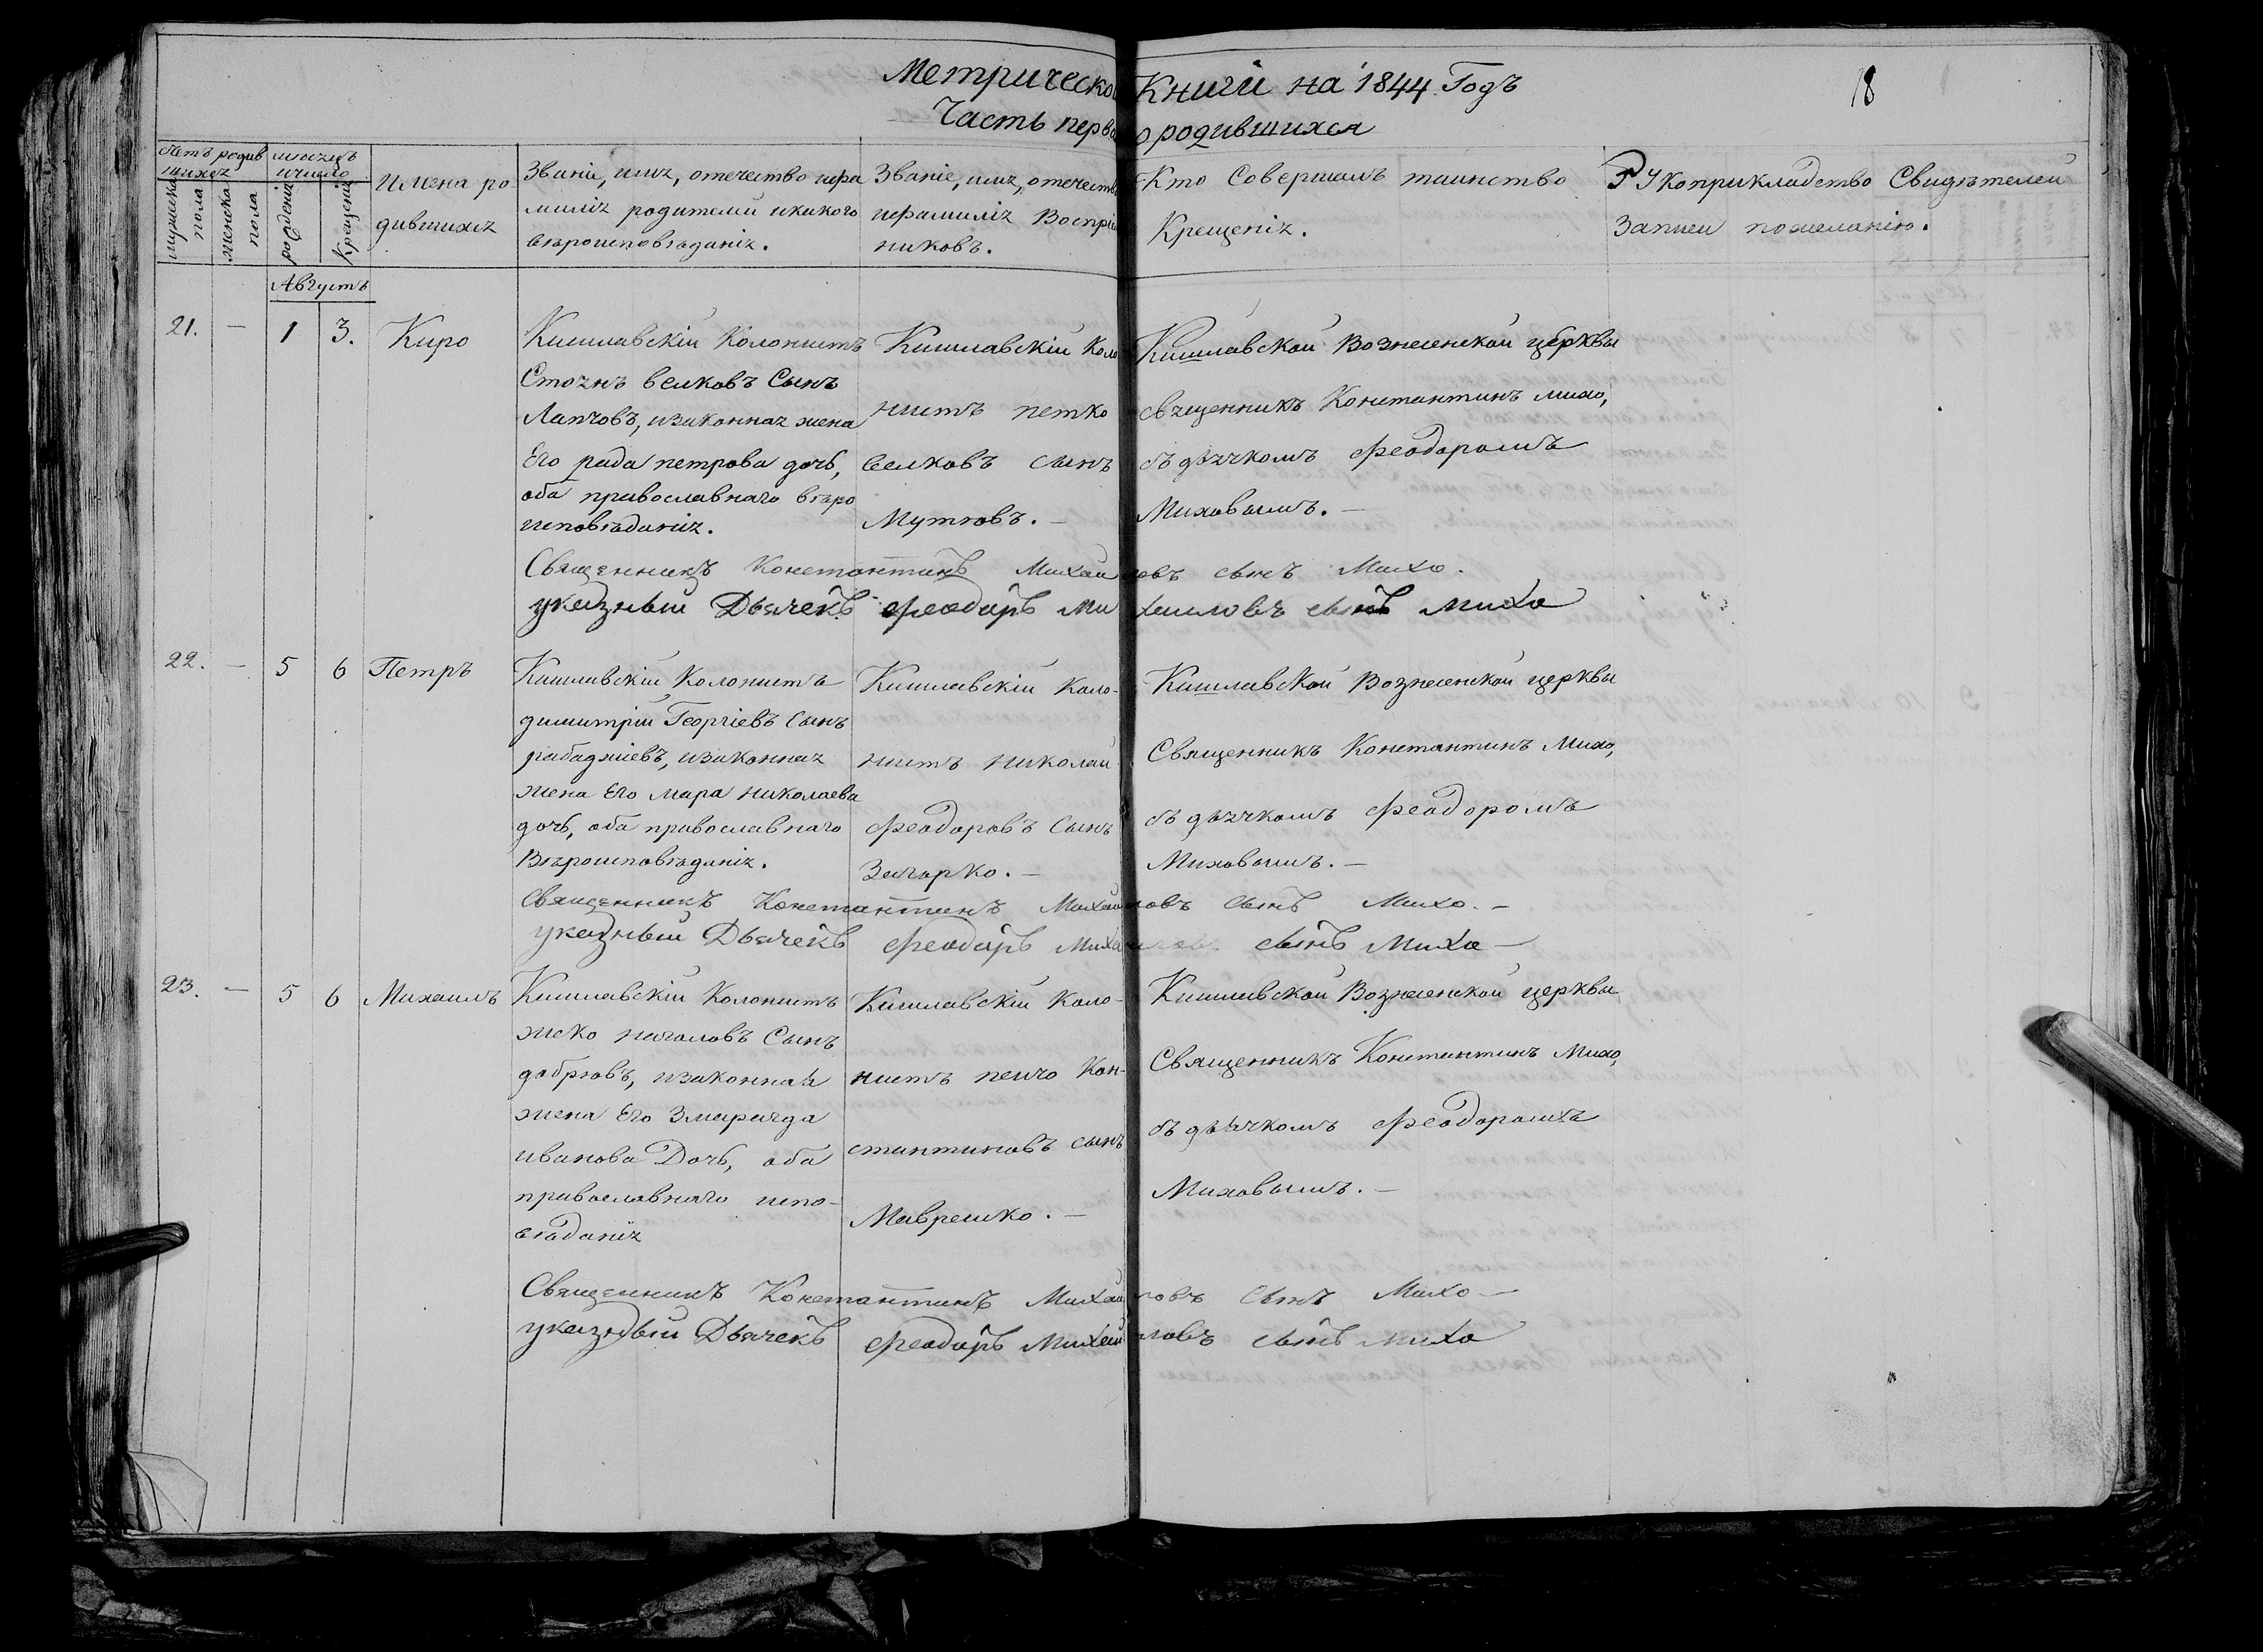 Метрической Книги на 1844 Годъ
18
Часть первая о родившихся
мужеска пола
женска пола
мѣсяцъ и число
рожденія
крещенія
Имена родившихся
Званіе, имя, отечество и фамилія родителей и какого вѣроисповѣданія.
Званіе, имя, отечество и фамилія Воспріемниковъ.
Кто Совершалъ таинство Крещенія.
Рукоприкладство Свидѣтелей Записи по желанію.
Августъ
21. — 1 3. Киро
Кишлавскій Колонистъ
Стоянъ велковъ Сынъ
Лапчовъ, изаконная жена
Его рада петрова дочь,
оба православнаго вѣро
исповѣданія.
Кишлавскій Коло
нистъ петко
велковъ сынъ
Мутювъ. —
Кишлавской Вознесенской церквы
священникъ Константинъ Михо,
съ дьячкомъ Феодоромъ
Миховымъ. —
Священникъ Константинъ Михайловъ сынъ Михо.
указный Дьячекъ Феодоръ Михаиловъ сынъ Михо
22. — 5 6 Петръ
Кишлавскій Колонистъ
димитрій Георгіевъ Сынъ
рабаджіевъ, изаконная
жена Его мара николаева
дочь, оба православнаго
Вѣроисповѣданія.
Кишлавскій Коло-
нистъ николай
Феодоровъ Сынъ
Загорко. —
Кишлавской Вознесенской церквы
Священникъ Константинъ Михо,
съ дьячкомъ Феодоромъ
Миховымъ. —
Священникъ Константинъ Михайловъ Сынъ Михо. —
указный Дьячекъ Феодоръ Михаиловъ сынъ Михо —
23. — 5 6 Михаилъ
Кишлавскій Колонистъ
жеко Сынъ
добревъ, изаконная
жена Его Змарагда
иванова Дочь, оба
православнаго испо-
вѣданія
Кишлавскій Коло-
нистъ пенчо Кон-
стантиновъ сынъ
Маврешко. —
Кишлавской Вознесенской церквы
Священникъ Константинъ Михо,
съ дьячкомъ Феодоромъ
Миховымъ. —
Священникъ Константинъ Михайловъ Сынъ Михо —
указный Дьячекъ Феодоръ Михайловъ сынъ Михо